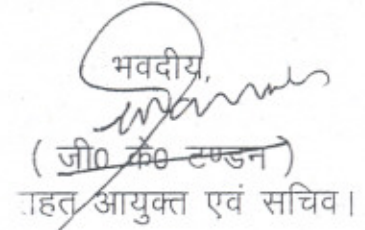 भवदीय,
( जी0 के0 टण्डन )
ाहत आयुक्त एवं सचिव।